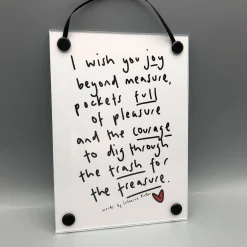 I wish you joy
beyond measure,
pockets full
of pleasure
and the courage
to dig through
the trash for
the treasure.
words by